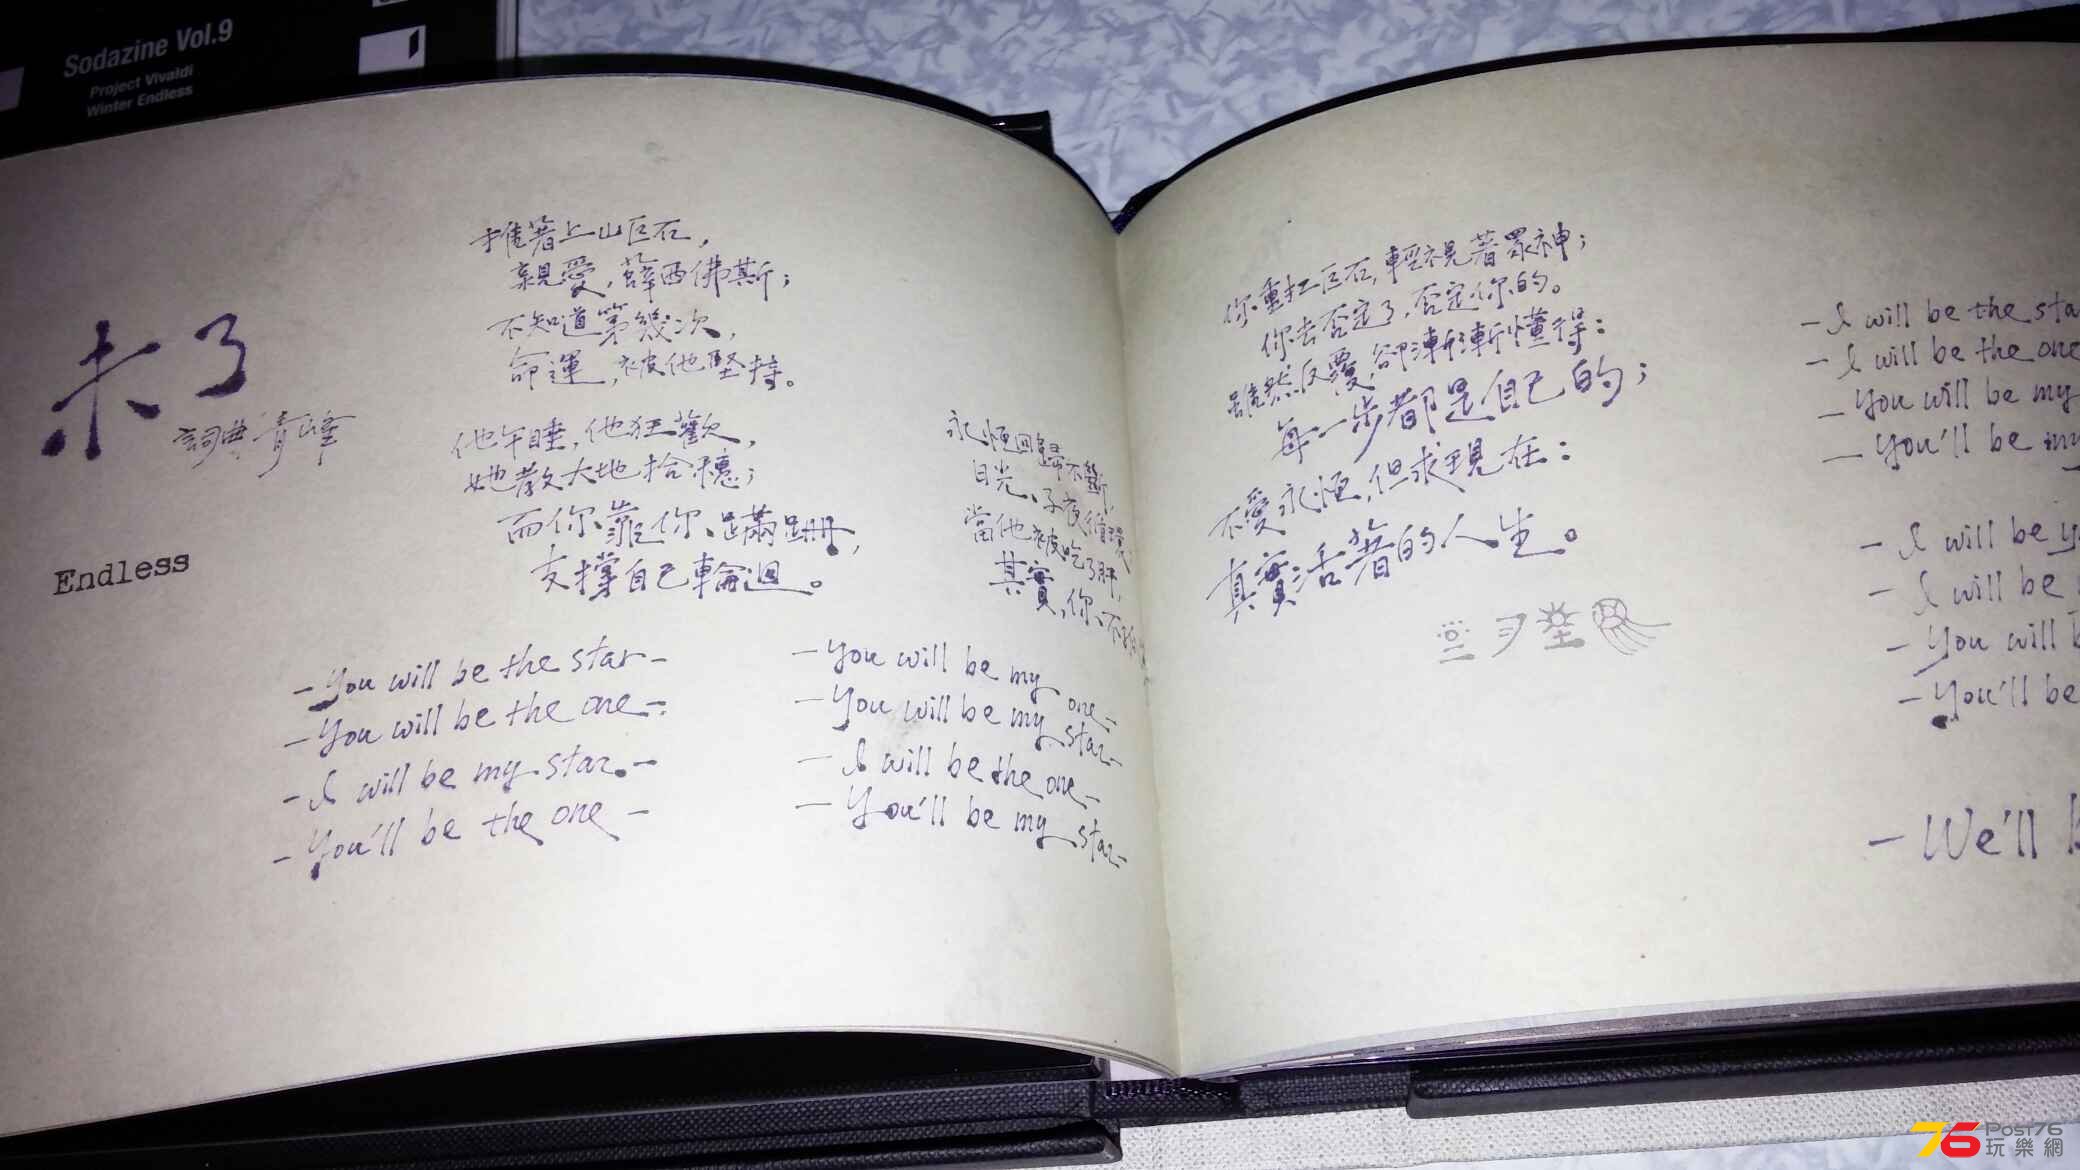 Sodazine Vol.9
Project Vivaldi
Winter Endless
未了
詞曲 青峰
Endless
推著上山巨石,
親愛,薛西佛斯;
不知道第幾次,
命運,被他堅持。
他午睡,他狂歡,
她散大地拾穗;
而你靠你、蹣跚,
支撐自己輪迴。
永恆回歸不斷,
日光、子夜循環
當他被吃了肝,
其實,你、不
-You will be the star-
-You will be the one-
-I will be my star.-
-You'll be the one-
-You will be my one-
-You will be my star-
-I will be the one-
-You'll be my star-
你重扛巨石,輕視著眾神;
你去否定了,否定你的。
雖然反覆,卻漸漸懂得:
每一步都是自己的;
不愛永恆,但求現在:
真實活著的人生。
-I will be the sta
-I will be the one
-You will be my
-You'll be my
-I will be y
-I will be
-You will b
-You'll be
-We'll b
76 Post76
玩樂網